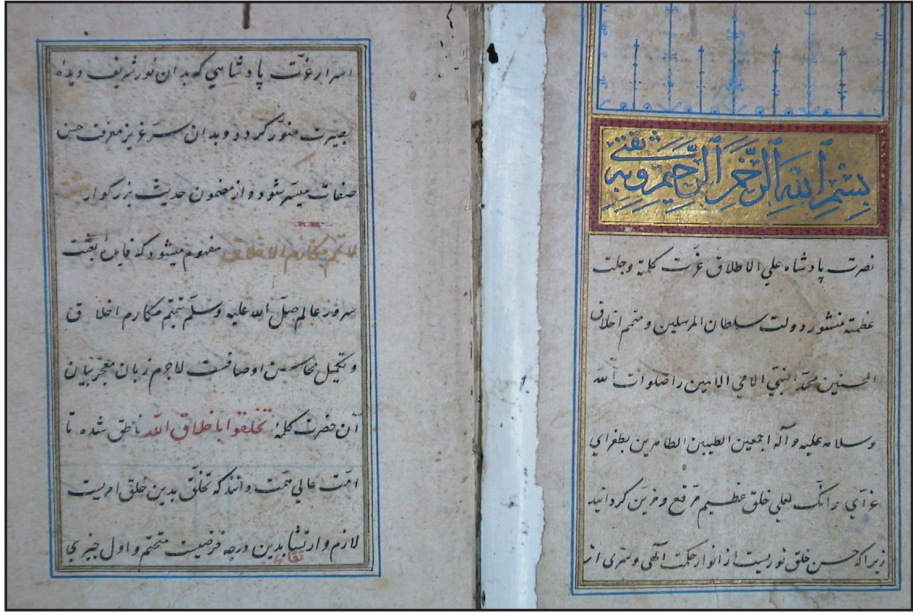 بسم الله الرحمن الرحیم وبه ثقتی
نصرت پادشاه علی الاطلاق عزت کلمة وجلت
عظمته منشور دولت سلطان المرسلین ومتمم اخلاق
المحسنین محمد النبی الامی الامین را صلوات الله
وسلامه علیه وآله اجمعین الطیبین الطاهرین بطغرای
غرای انک لعلی خلق عظیم مرفع ومزین کردانید
زیراکه حسن خلق نوریست از انوار حکمت الهی وسری از
اسرار عزت پادشاهی که بدان نور شریف دیده
بصیرت منور کردد وبدان سر عزیز معرفت حسن
صفات میسر شود واز مضمون حدیث بزرکوار
لاتمم مکارم الاخلاق مفهوم میشود که فایده بعثت
سرور عالم صلی الله علیه وسلم تتمیم مکارم اخلاق
وتکمیل محاسن اوصافست لاجرم زبان معجز بیان
آن حضرت کلمهٔ تخلقوا باخلاق الله ناطق شده تا
امت عالی همت دانند که تخلق بدین خلق امریست
لازم وارتقا بدین درجه فرضیت متحتم واول چیزی